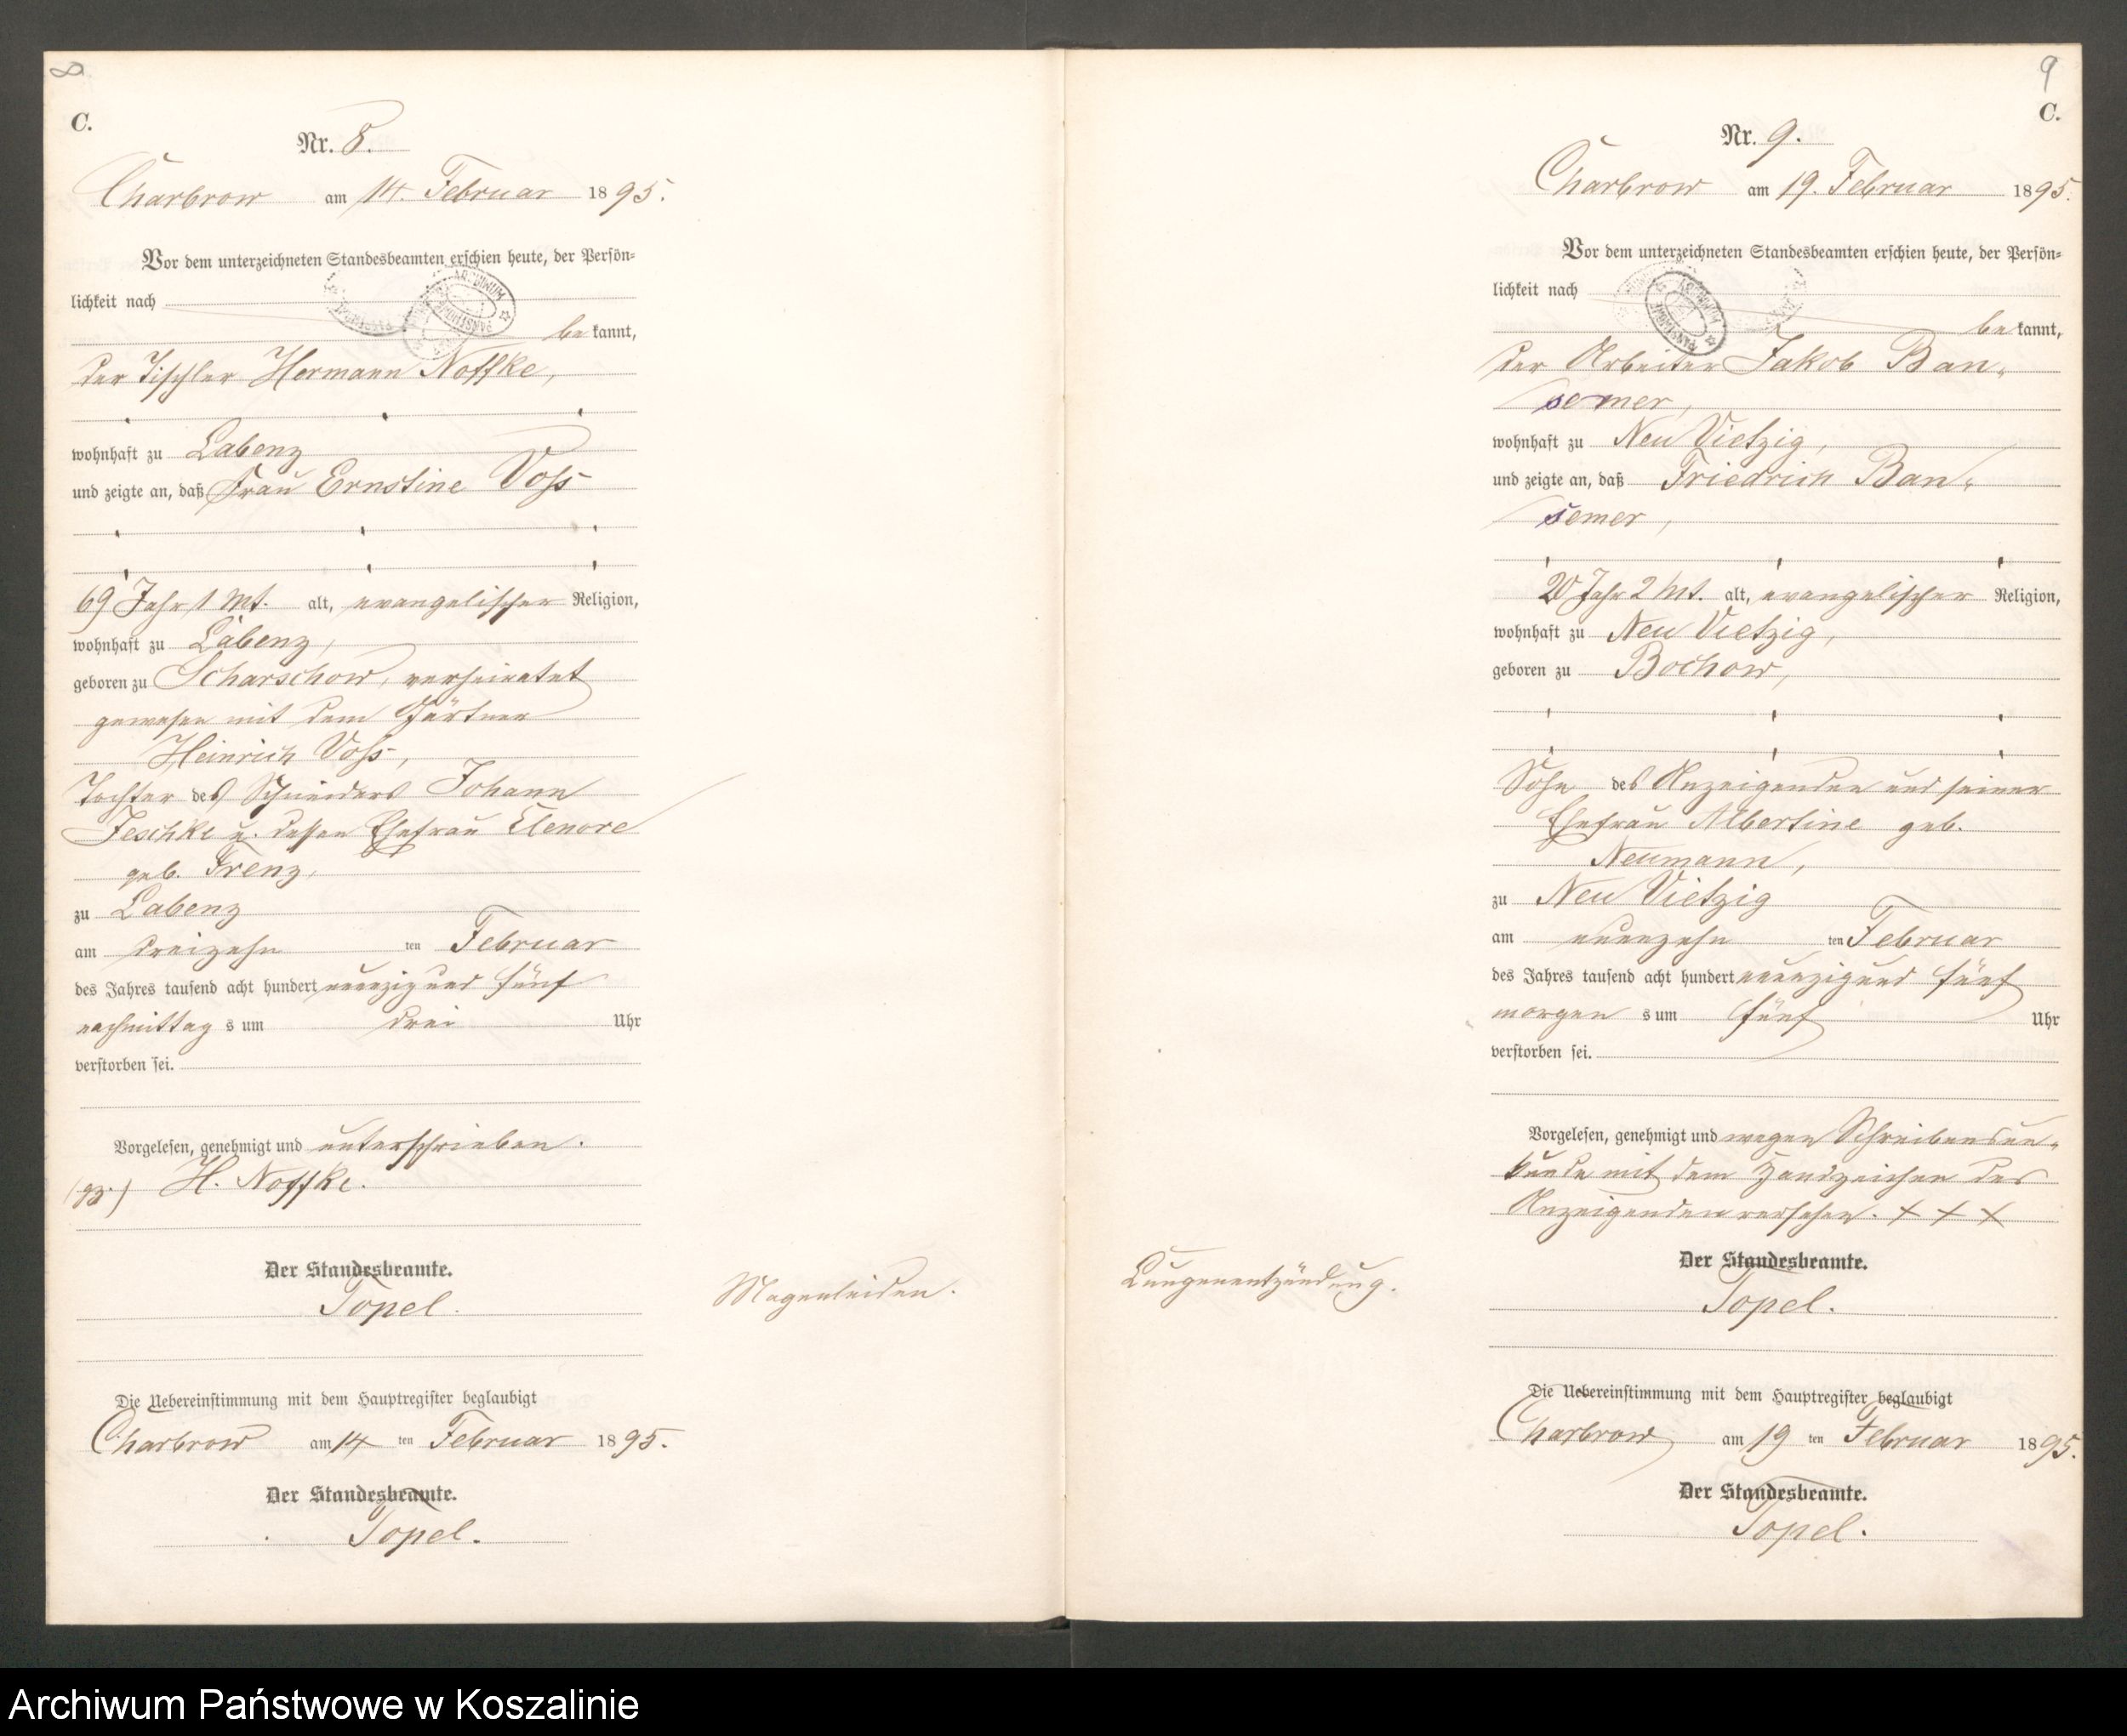 8
C.
Nr. 8.
Charbrow am 14. Februar 1895.
Vor dem unterzeichneten Standesbeamten erschien heute, der Persön-
lichkeit nach
be kannt,
der Tischler Hermann Noffke,
wohnhaft zu Labenz
und zeigte an, daß Frau Ernstine Voss
69 Jahr 1 Mt. alt, evangelischer Religion,
wohnhaft zu Labenz,
geboren zu Scharschow, verheiratet
gewesen mit dem Gärtner
Heinrich Voss,
Tochter des Schneiders Johann
Jeschke u. dessen Ehefrau Elenore
geb. Frenz,
zu Labenz
am dreizehn ten Februar
des Jahres tausend acht hundert neunzig und fünf
nachmittag s um drei Uhr
verstorben sei.
Vorgelesen, genehmigt und unterschrieben.
(gz.) H. Noffke.
Der Standesbeamte.
Topel.
Magenleiden.
Die Uebereinstimmung mit dem Hauptregister beglaubigt
Charbrow am 14 ten Februar 1895.
Der Standesbeamte.
Topel.
9
C.
Nr. 9.
Charbrow am 19. Februar 1895.
Vor dem unterzeichneten Standesbeamten erschien heute, der Persön-
lichkeit nach
be kannt,
der Arbeiter Jakob Ban-
semer,
wohnhaft zu Neu Vietzig,
und zeigte an, daß Friedrich Ban-
semer,
20 Jahr 2 Mt. alt, evangelischer Religion,
wohnhaft zu Neu Vietzig,
geboren zu Bochow,
Sohn des Anzeigenden und seiner
Ehefrau Albertine geb.
Neumann,
zu Neu Vietzig
am neunzehn ten Februar
des Jahres tausend acht hundert neunzig und fünf
morgen s um fünf Uhr
verstorben sei.
Vorgelesen, genehmigt und wegen Schreibensun-
kunde mit dem Handzeichen des
Anzeigenden versehen. + + +
Der Standesbeamte.
Topel.
Lungenentzündung.
Die Uebereinstimmung mit dem Hauptregister beglaubigt
Charbrow am 19 ten Februar 1895.
Der Standesbeamte.
Topel.
Archiwum Państwowe w Koszalinie